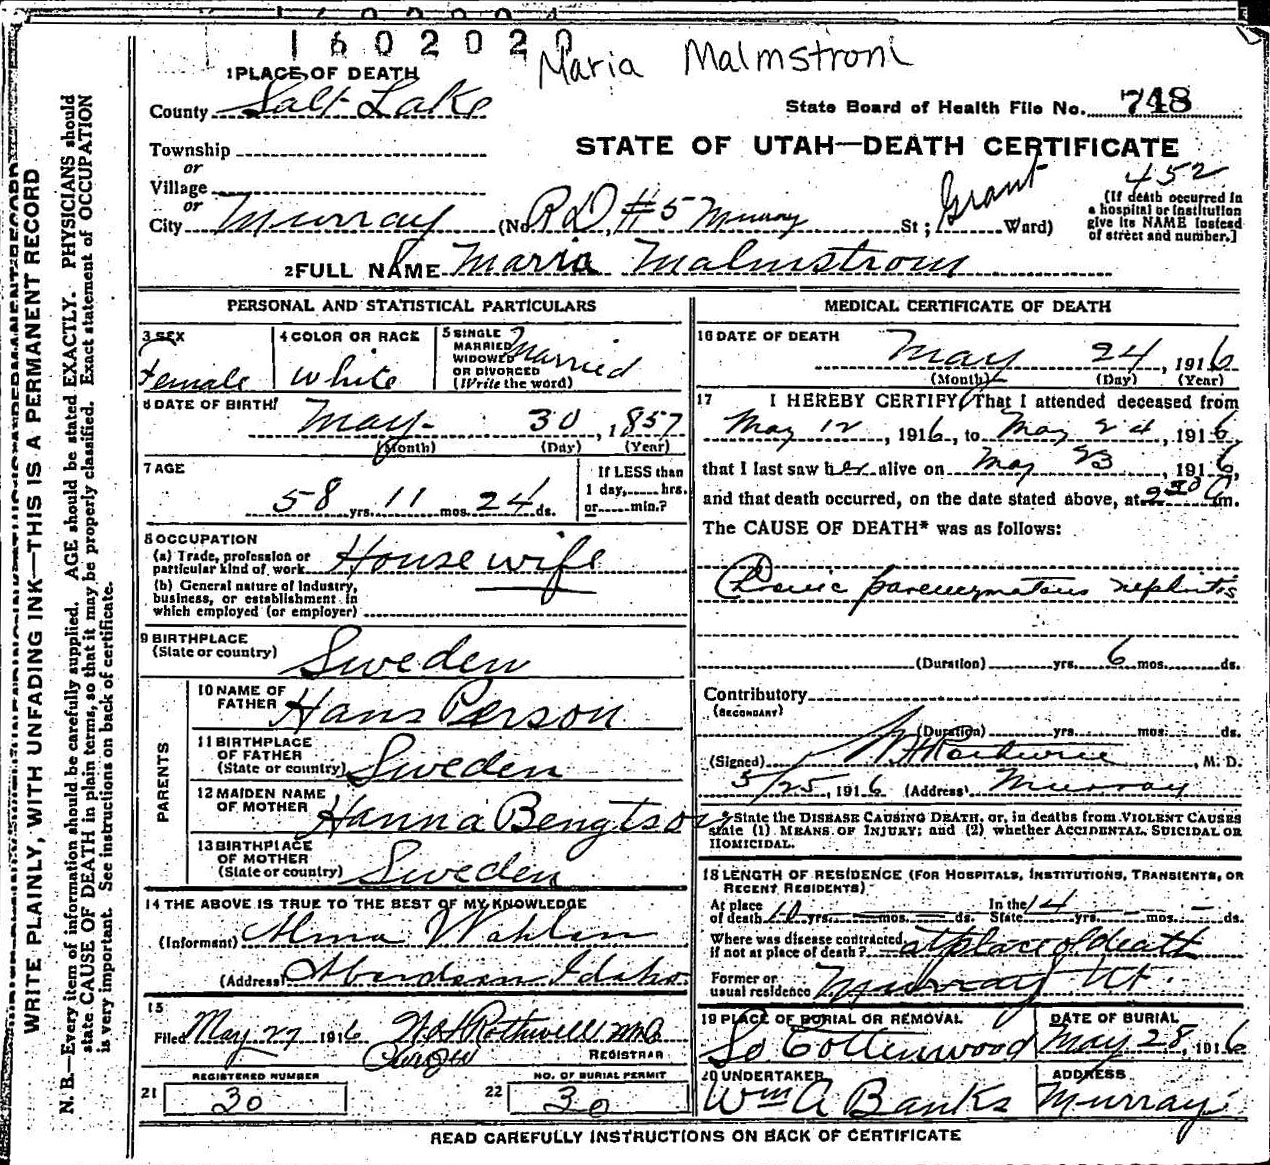 1602020
Maria Malmstrom
1 PLACE OF DEATH
County Salt Lake
State Board of Health File No. 748
Township
STATE OF UTAH—DEATH CERTIFICATE
or
Village
or
452
City Murray (No. R D, #5 Murray St; Grant Ward)
[If death occurred in a hospital or institution give its NAME instead of street and number.]
2 FULL NAME Maria Malmstrom
PERSONAL AND STATISTICAL PARTICULARS
3 SEX Female
4 COLOR OR RACE White
5 SINGLE MARRIED WIDOWED OR DIVORCED (Write the word) Married
6 DATE OF BIRTH May 30, 1857
(Month) (Day) (Year)
7 AGE 58 yrs. 11 mos. 24 ds.
If LESS than 1 day, hrs. or min.?
8 OCCUPATION
(a) Trade, profession or particular kind of work House wife
(b) General nature of industry, business, or establishment in which employed (or employer)
9 BIRTHPLACE (State or country) Sweden
PARENTS
10 NAME OF FATHER Hans Person
11 BIRTHPLACE OF FATHER (State or country) Sweden
12 MAIDEN NAME OF MOTHER Hanna Bengtson
13 BIRTHPLACE OF MOTHER (State or country) Sweden
14 THE ABOVE IS TRUE TO THE BEST OF MY KNOWLEDGE
(Informant) Alma Wahlen
(Address) Aberdeen Idaho
15
Filed May 27 1916 N H Rothwell
REGISTRAR
REGISTERED NUMBER
21 30
NO. OF BURIAL PERMIT
22 30
MEDICAL CERTIFICATE OF DEATH
16 DATE OF DEATH May 24, 1916
(Month) (Day) (Year)
17 I HEREBY CERTIFY, That I attended deceased from
May 12, 1916, to May 24, 1916,
that I last saw her alive on May 23, 1916,
and that death occurred, on the date stated above, at 2 30 a m.
The CAUSE OF DEATH* was as follows:
Chronic parenchymatous nephritis
(Duration) yrs. 6 mos. ds.
Contributory
(SECONDARY)
(Duration) yrs. mos. ds.
(Signed) M. D.
5/25, 1916 (Address) Murray
State the DISEASE CAUSING DEATH, or, in deaths from VIOLENT CAUSES
state (1) MEANS OF INJURY; and (2) whether ACCIDENTAL, SUICIDAL OR
HOMICIDAL.
18 LENGTH OF RESIDENCE (FOR HOSPITALS, INSTITUTIONS, TRANSIENTS, OR
RECENT RESIDENTS)
At place of death 10 yrs. mos. ds. In the State 14 yrs. - mos. - ds.
Where was disease contracted if not at place of death? at place of death
Former or usual residence Murray Ut.
19 PLACE OF BURIAL OR REMOVAL So Cottenwood
DATE OF BURIAL May 28, 1916
20 UNDERTAKER Wm A Banks
ADDRESS Murray
READ CAREFULLY INSTRUCTIONS ON BACK OF CERTIFICATE
WRITE PLAINLY, WITH UNFADING INK—THIS IS A PERMANENT RECORD
N. B.—Every item of information should be carefully supplied. AGE should be stated EXACTLY. PHYSICIANS should
state CAUSE OF DEATH in plain terms, so that it may be properly classified. Exact statement of OCCUPATION
is very important. See instructions on back of certificate.